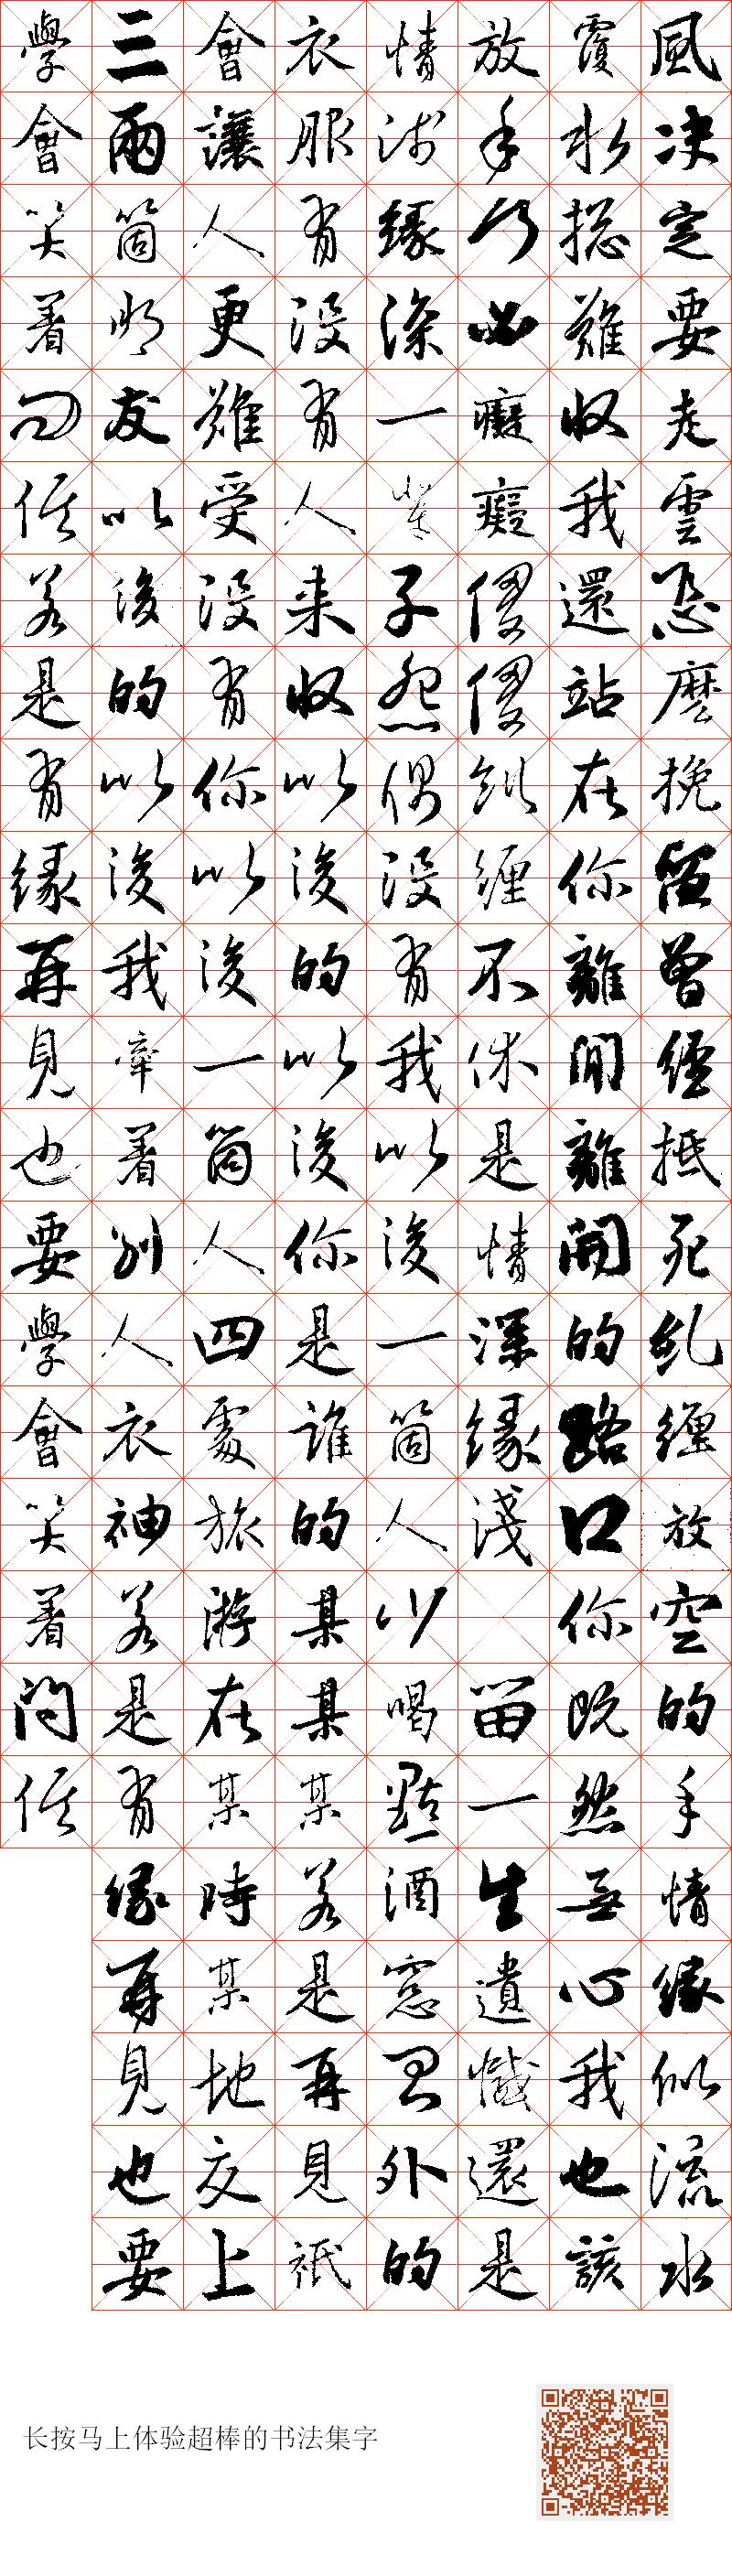 風决定要走雲怎麽挽留曾經抵死糾纏放空的手情緣似流水
覆水總難收我還站在你離開離開的路口你既然無心我也該
放手何必癡癡傻傻糾纏不休是情深緣淺 留一生遺憾還是
情淺緣深一輩子怨偶没有我以後一箇人少喝點酒窓里外的
衣服有没有人来收以後的以後你是誰的某某某若是再見衹
會讓人更難受没有你以後一箇人四處旅游在某時某地交上
三兩箇朋友以後的以後我牽着别人衣袖若是有緣再見也要
學會笑着問候若是有緣再見也要學會笑着問候
长按马上体验超棒的书法集字